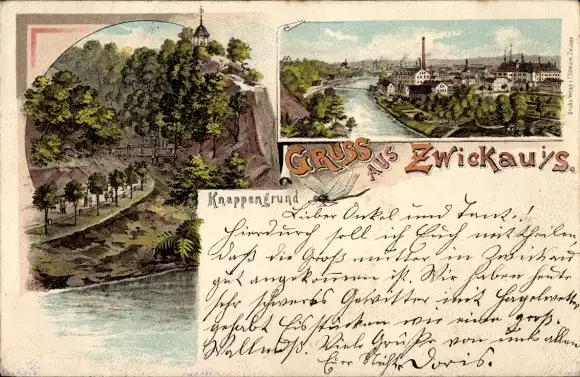 GRUSS AUS ZWICKAU i/S.
Knappengrund
Lieber Onkel und Tant.!
Hierdurch soll ich Euch mittheilen
daß die Groß mutter in Zwickau
gut angekommen ist. Wir haben heute
sehr schweres Gewitter mit Hagelwetter
gehabt Eisstücken wie eine groß.
Wallnuß. Viele Grüße von uns allen
Eure Nichte Doris.